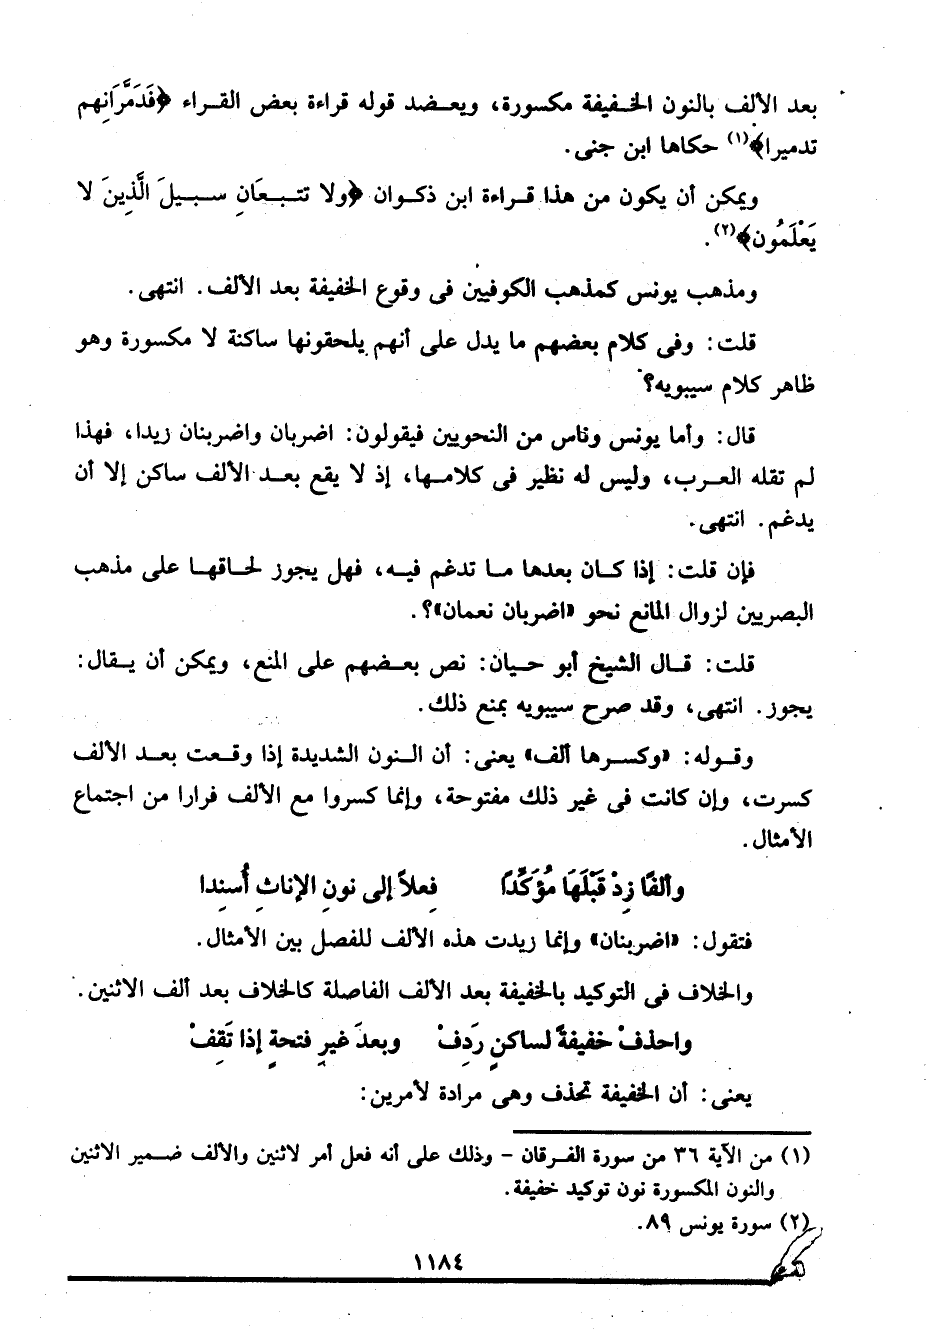 بعد الألف بالنون الخفيفة مكسورة، ويعضد قوله قراءة بعض القراء ﴿فَدَمَّرَانِهم
تدميرا﴾(١) حكاها ابن جنى.
ويمكن أن يكون من هذا قراءة ابن ذكوان ﴿ولا تتبعَانِ سبيلَ الَّذِينَ لا
يَعْلَمُون﴾(٢).
ومذهب يونس كمذهب الكوفيين فى وقوع الخفيفة بعد الألف. انتهى.
قلت: وفى كلام بعضهم ما يدل على أنهم يلحقونها ساكنة لا مكسورة وهو
ظاهر كلام سيبويه؟
قال: وأما يونس وناس من النحويين فيقولون: اضربان واضربنان زيدا، فهذا
لم تقله العرب، وليس له نظير فى كلامها، إذ لا يقع بعد الألف ساكن إلا أن
يدغم. انتهى.
فإن قلت: إذا كان بعدها ما تدغم فيه، فهل يجوز لحاقها على مذهب
البصريين لزوال المانع نحو «اضربان نعمان»؟.
قلت: قال الشيخ أبو حيان: نص بعضهم على المنع، ويمكن أن يقال:
يجوز. انتهى، وقد صرح سيبويه بمنع ذلك.
وقوله: «وكسرها ألف» يعنى: أن النون الشديدة إذا وقعت بعد الألف
كسرت، وإن كانت فى غير ذلك مفتوحة، وإنما كسروا مع الألف فرارا من اجتماع
الأمثال.
وألفًا زِدْ قَبْلَهَا مُؤَكِّدًا فِعلاً إلى نونِ الإناثِ أُسنِدا
فتقول: «اضربنان» وإنما زيدت هذه الألف للفصل بين الأمثال.
والخلاف فى التوكيد بالخفيفة بعد الألف الفاصلة كالخلاف بعد ألف الاثنين.
واحذفْ خفيفةً لساكنٍ رَدِفْ وبعدَ غيرِ فتحةٍ إذا تَقِفْ
يعنى: أن الخفيفة تحذف وهى مرادة لأمرين:
(١) من الآية ٣٦ من سورة الفرقان - وذلك على أنه فعل أمر لاثنين والألف ضمير الاثنين
والنون المكسورة نون توكيد خفيفة.
(٢) سورة يونس ٨٩.
١١٨٤